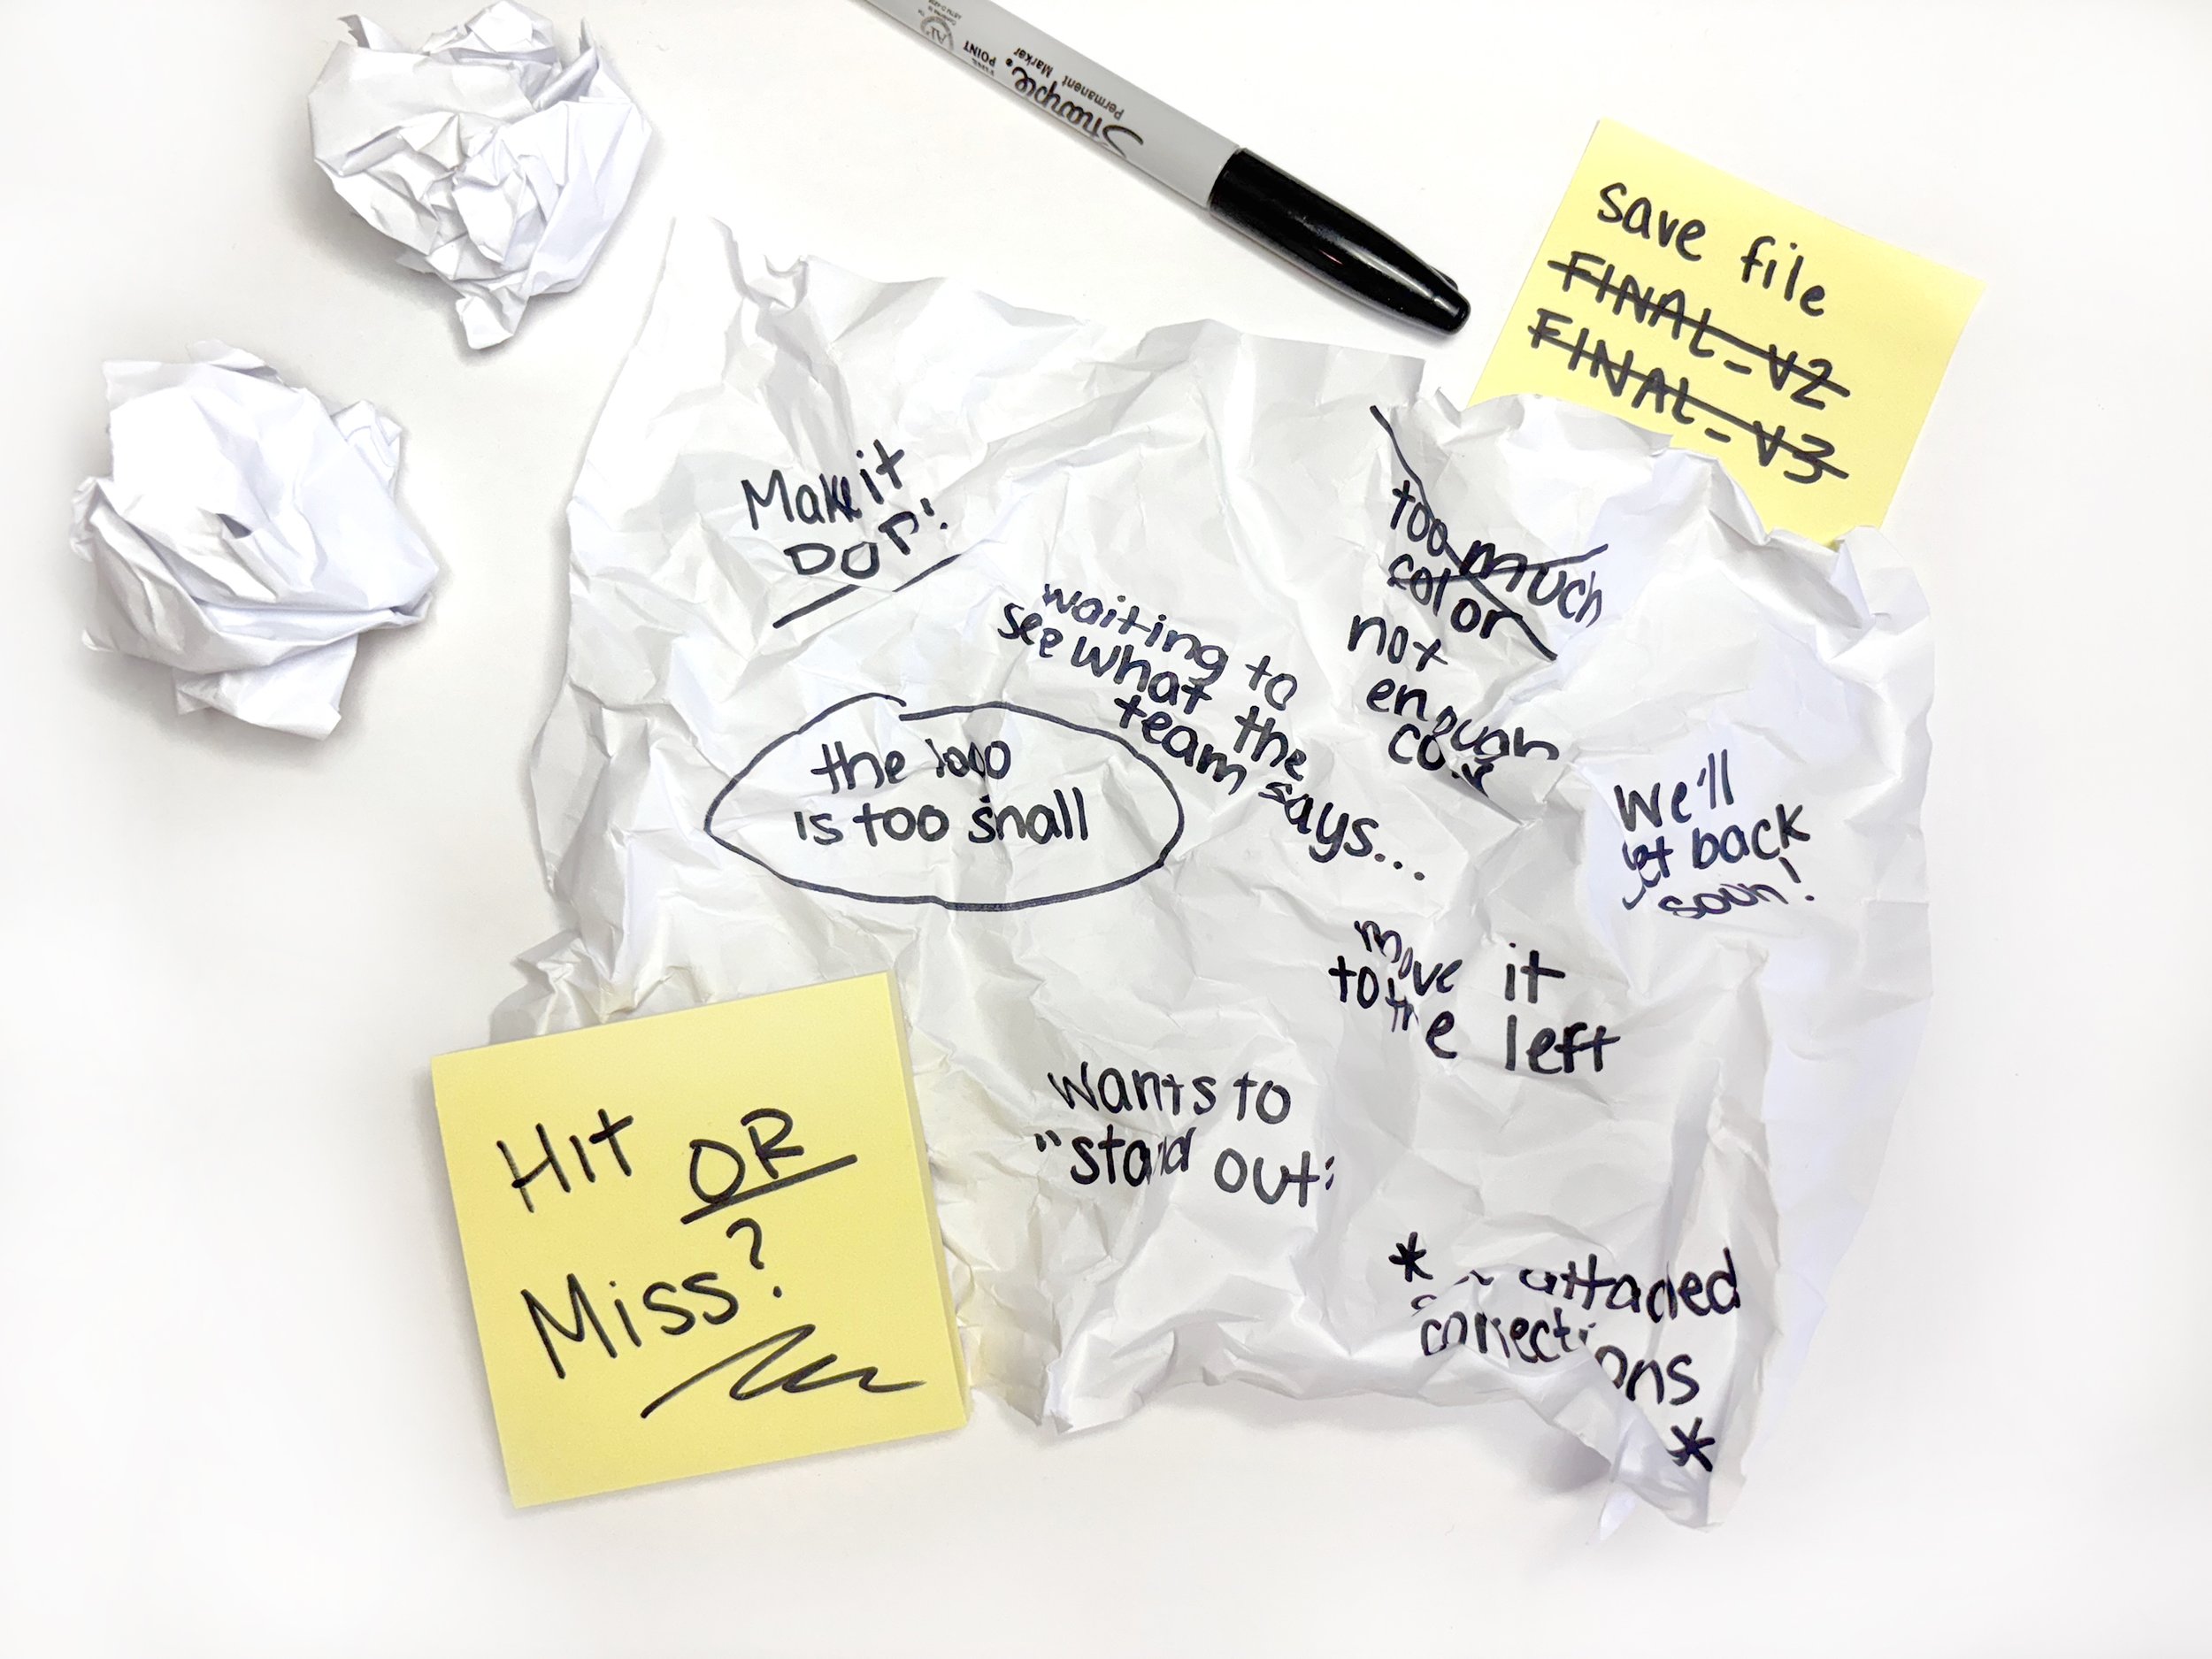 Sharpie.
Permanent Marker
FINE POINT
save file
FINAL_V2
FINAL_V3
Make it
POP!
too much
color
not
enough
waiting to
see what the
team says...
the logo
is too small
We'll
get back
soon!
move it
to the left
wants to
"stand out"
Hit OR
Miss?
* attached
corrections
*